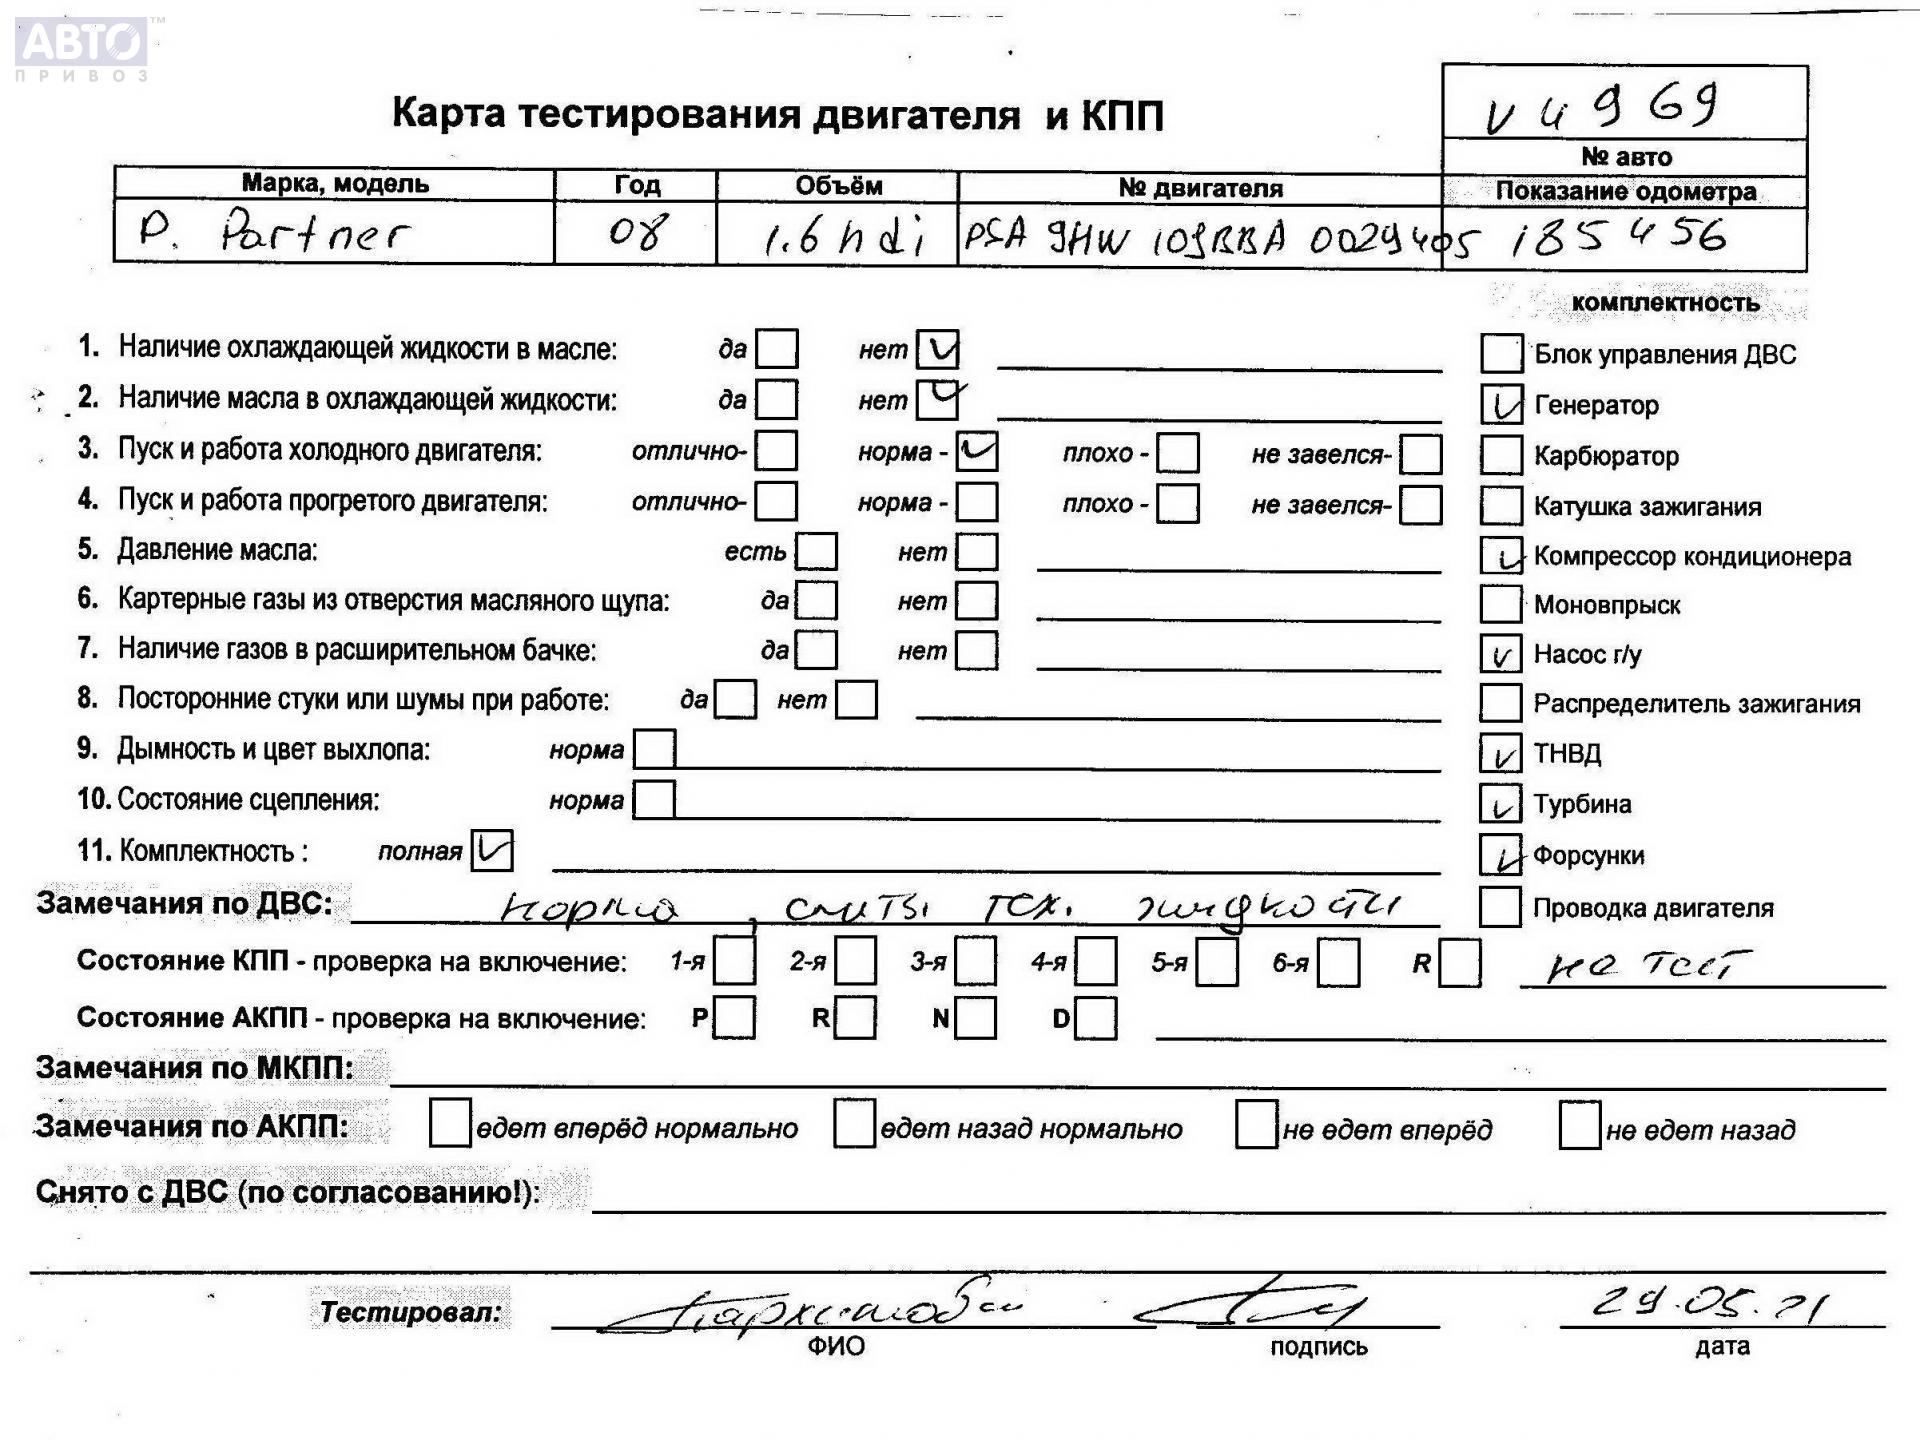 АВТО™
ПРИВОЗ
Карта тестирования двигателя и КПП
V4969
№ авто
Марка, модель Год Объём № двигателя Показание одометра
P. Partner 08 1.6 hdi PSA 9HW 10JBBA 0029405 185456
комплектность
1. Наличие охлаждающей жидкости в масле: да нет Блок управления ДВС
2. Наличие масла в охлаждающей жидкости: да нет Генератор
3. Пуск и работа холодного двигателя: отлично- норма - плохо - не завелся- Карбюратор
4. Пуск и работа прогретого двигателя: отлично- норма - плохо - не завелся- Катушка зажигания
5. Давление масла: есть нет Компрессор кондиционера
6. Картерные газы из отверстия масляного щупа: да нет Моновпрыск
7. Наличие газов в расширительном бачке: да нет Насос г/у
8. Посторонние стуки или шумы при работе: да нет Распределитель зажигания
9. Дымность и цвет выхлопа: норма ТНВД
10. Состояние сцепления: норма Турбина
11. Комплектность : полная Форсунки
Замечания по ДВС: норма, слиты тех. жидкости Проводка двигателя
Состояние КПП - проверка на включение: 1-я 2-я 3-я 4-я 5-я 6-я R не тест
Состояние АКПП - проверка на включение: P R N D
Замечания по МКПП:
Замечания по АКПП: едет вперёд нормально едет назад нормально не едет вперёд не едет назад
Снято с ДВС (по согласованию!):
Тестировал: 29.05.21
ФИО подпись дата